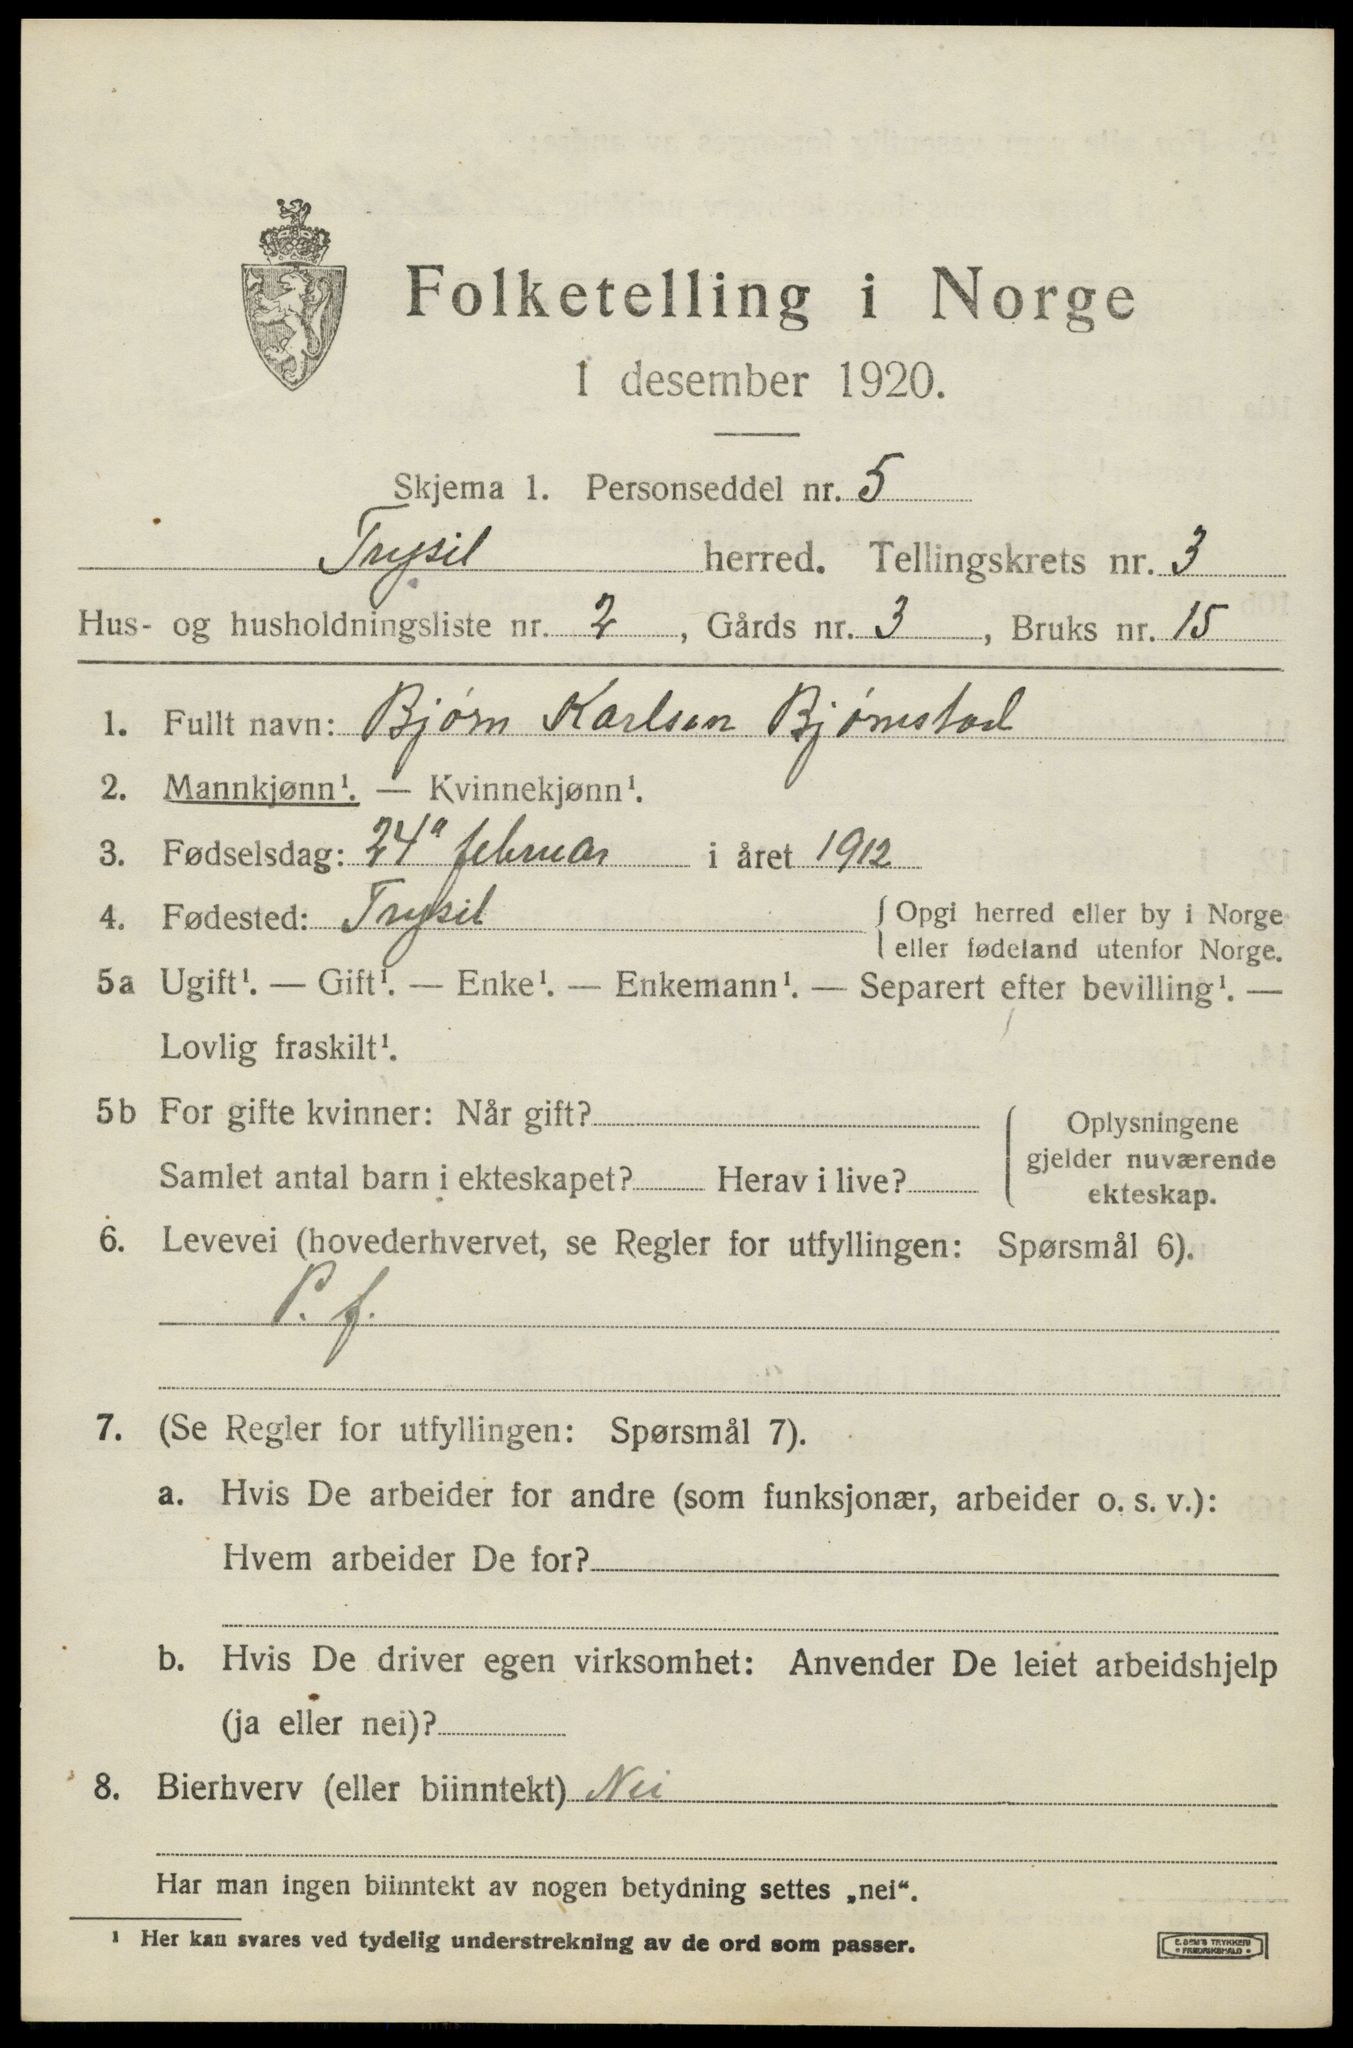 Folketelling i Norge
1 desember 1920.
Skjema 1. Personseddel nr. 5
Trysil herred. Tellingskrets nr. 3
Hus- og husholdningsliste nr. 2, Gårds nr. 3, Bruks nr. 15
1. Fullt navn: Bjørn Karlsen Bjørnstad
2. Mannkjønn¹. — Kvinnekjønn¹.
3. Fødselsdag: 24ᵃ februar i året 1912
4. Fødested: Trysil { Opgi herred eller by i Norge
eller fødeland utenfor Norge.
5a Ugift¹. — Gift¹. — Enke¹. — Enkemann¹. — Separert efter bevilling¹. —
Lovlig fraskilt¹.
5b For gifte kvinner: Når gift?
Samlet antal barn i ekteskapet? Herav i live?
Oplysningene
gjelder nuværende
ekteskap.
6. Levevei (hovederhvervet, se Regler for utfyllingen: Spørsmål 6).
P. f.
7. (Se Regler for utfyllingen: Spørsmål 7).
a. Hvis De arbeider for andre (som funksjonær, arbeider o. s. v.):
Hvem arbeider De for?
b. Hvis De driver egen virksomhet: Anvender De leiet arbeidshjelp
(ja eller nei)?
8. Bierhverv (eller biinntekt) Nei
Har man ingen biinntekt av nogen betydning settes „nei“.
¹ Her kan svares ved tydelig understrekning av de ord som passer.
E. SEM'S TRYKKERI
• FREDRIKSHALD •